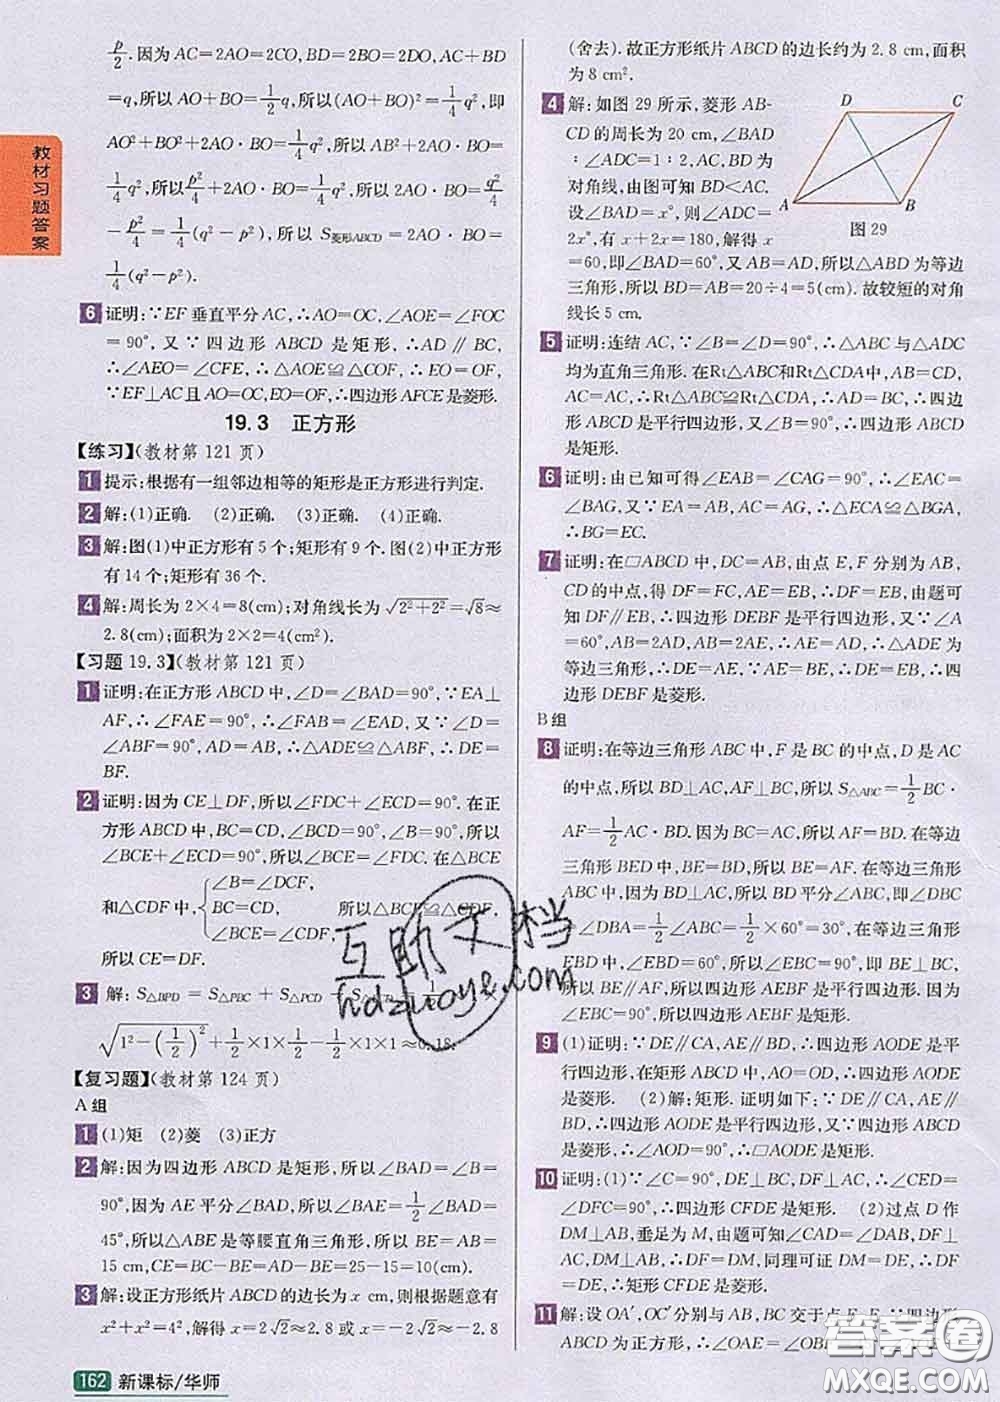 教材习题答案
p/2.因为AC=2AO=2CO,BD=2BO=2DO,AC+BD
=q,所以AO+BO=1/2q,所以(AO+BO)²=1/4q²,即
AO²+BO²+2AO·BO=1/4q²,所以AB²+2AO·BO=
1/4q²,所以p²/4+2AO·BO=1/4q²,所以2AO·BO=q²/4
-p²/4=1/4(q²-p²),所以S菱形ABCD=2AO·BO=
1/4(q²-p²).
6 证明:∵EF垂直平分AC,∴AO=OC,∠AOE=∠FOC
=90°,又∵四边形ABCD是矩形,∴AD∥BC,
∴∠AEO=∠CFE,∴△AOE≌△COF,∴EO=OF,
∵EF⊥AC且AO=OC,EO=OF,∴四边形AFCE是菱形.
19.3 正方形
【练习】(教材第121页)
1 提示:根据有一组邻边相等的矩形是正方形进行判定.
2 解:(1)正确. (2)正确. (3)正确. (4)正确.
3 解:图(1)中正方形有5个;矩形有9个.图(2)中正方形
有14个;矩形有36个.
4 解:周长为2×4=8(cm);对角线长为√(2²+2²)=√8≈
2.8(cm);面积为2×2=4(cm²).
【习题19.3】(教材第121页)
1 证明:在正方形ABCD中,∠D=∠BAD=90°,∵EA⊥
AF,∴∠FAE=90°,∴∠FAB=∠EAD,又∵∠D=
∠ABF=90°,AD=AB,∴△ADE≌△ABF,∴DE=
BF.
2 证明:因为CE⊥DF,所以∠FDC+∠ECD=90°.在正
方形ABCD中,BC=CD,∠BCD=90°,∠B=90°,所以
∠BCE+∠ECD=90°,所以∠BCE=∠FDC.在△BCE
和△CDF中,{∠B=∠DCF,
BC=CD,
∠BCE=∠CDF,
所以△BCE≌△CDF,
所以CE=DF.
3 解:S△BPD=S△PBC+S△PCD-S
√(1²-(1/2)²)+1/2×1×1/2-1/2×1×1≈0.18.
【复习题】(教材第124页)
A组
1 (1)矩 (2)菱 (3)正方
2 解:因为四边形ABCD是矩形,所以∠BAD=∠B=
90°,因为AE平分∠BAD,所以∠BAE=1/2∠BAD=
45°,所以△ABE是等腰直角三角形,所以BE=AB=
15 cm,CE=BC-BE=25-15=10(cm).
3 解:设正方形纸片ABCD的边长为x cm,则根据题意有
x²+x²=4²,解得x=2√2≈2.8或x=-2√2≈-2.8
162 新课标/华师
(舍去).故正方形纸片ABCD的边长约为2.8 cm,面积
为8 cm².
4 解:如图29所示,菱形AB-
CD的周长为20 cm,∠BAD
:∠ADC=1:2,AC,BD为
对角线,由图可知BD<AC.
设∠BAD=x°,则∠ADC=
2x°,有x+2x=180,解得x
=60,即∠BAD=60°,又AB=AD,所以△ABD为等边
三角形,所以BD=AB=20÷4=5(cm).故较短的对角
线长5 cm.
D
C
A
B
图29
5 证明:连结AC,∵∠B=∠D=90°,∴△ABC与△ADC
均为直角三角形.在Rt△ABC和Rt△CDA中,AB=CD,
AC=AC,∴Rt△ABC≌Rt△CDA,∴BC=AD,∴四边形
ABCD是平行四边形,又∵∠B=90°,∴四边形ABCD
是矩形.
6 证明:由已知可得∠EAB=∠CAG=90°,∴∠EAC=
∠BAG,又∵EA=AB,AC=AG,∴△EAC≌△BGA,
∴BG=EC.
7 证明:在□ABCD中,DC=AB,由点E,F分别为AB,
CD的中点,得DF=FC=EB,∴DF=EB,由题可
知DF∥EB,∴四边形DEBF是平行四边形,又∵∠A
=60°,AB=2AD,AB=2AE,∴AE=AD,∴△ADE为
等边三角形,∴DE=AE,又∵AE=EB,∴DE=EB,∴四
边形DEBF是菱形.
B组
8 证明:在等边三角形ABC中,F是BC的中点,D是AC
的中点,所以BD⊥AC,AF⊥BC,所以S△ABC=1/2BC·
AF=1/2AC·BD.因为BC=AC,所以AF=BD.在等边三
角形BED中,BE=BD,所以BE=AF.在等边三角形
ABC中,因为D是AC的中点,所以BD平分∠ABC,即∠ABD
=∠DBA=1/2∠ABC=1/2×60°=30°,在等边三角形
EBD中,∠EBD=60°,所以∠EBC=90°,即EB⊥BC,所
以BE∥AF,所以四边形AEBF是平行四边形.因为
∠EBC=90°,所以四边形AEBF是矩形.
9 (1)证明:∵DE∥CA,AE∥BD,∴四边形AODE是平
行四边形,在矩形ABCD中,AO=OD,∴四边形AODE
是菱形. (2)解:矩形.证明如下:∵DE∥CA,AE∥BD,
∴四边形AODE是平行四边形,又∵四边形ABCD是菱
形,∴∠AOD=90°,∴□AODE是矩形.
10 证明:(1)∵∠C=90°,DE⊥BC,DF⊥AC,∴∠CED=
∠DFC=90°,∴四边形CFDE是矩形. (2)过点D作
DM⊥AB,垂足为M,由题可知∠CAD=∠DAB,DF⊥
AC,DM⊥AB,∴DF=DM,同理可证DM=DE,∴DF
=DE,∴矩形CFDE是菱形.
11 解:设OA′,OC′分别与AB,BC交于点E,F,∵四边形
ABCD为正方形,∴∠OAE=∠OB
互助文档
hdzuoye.com
答案圈
MXQE.COM